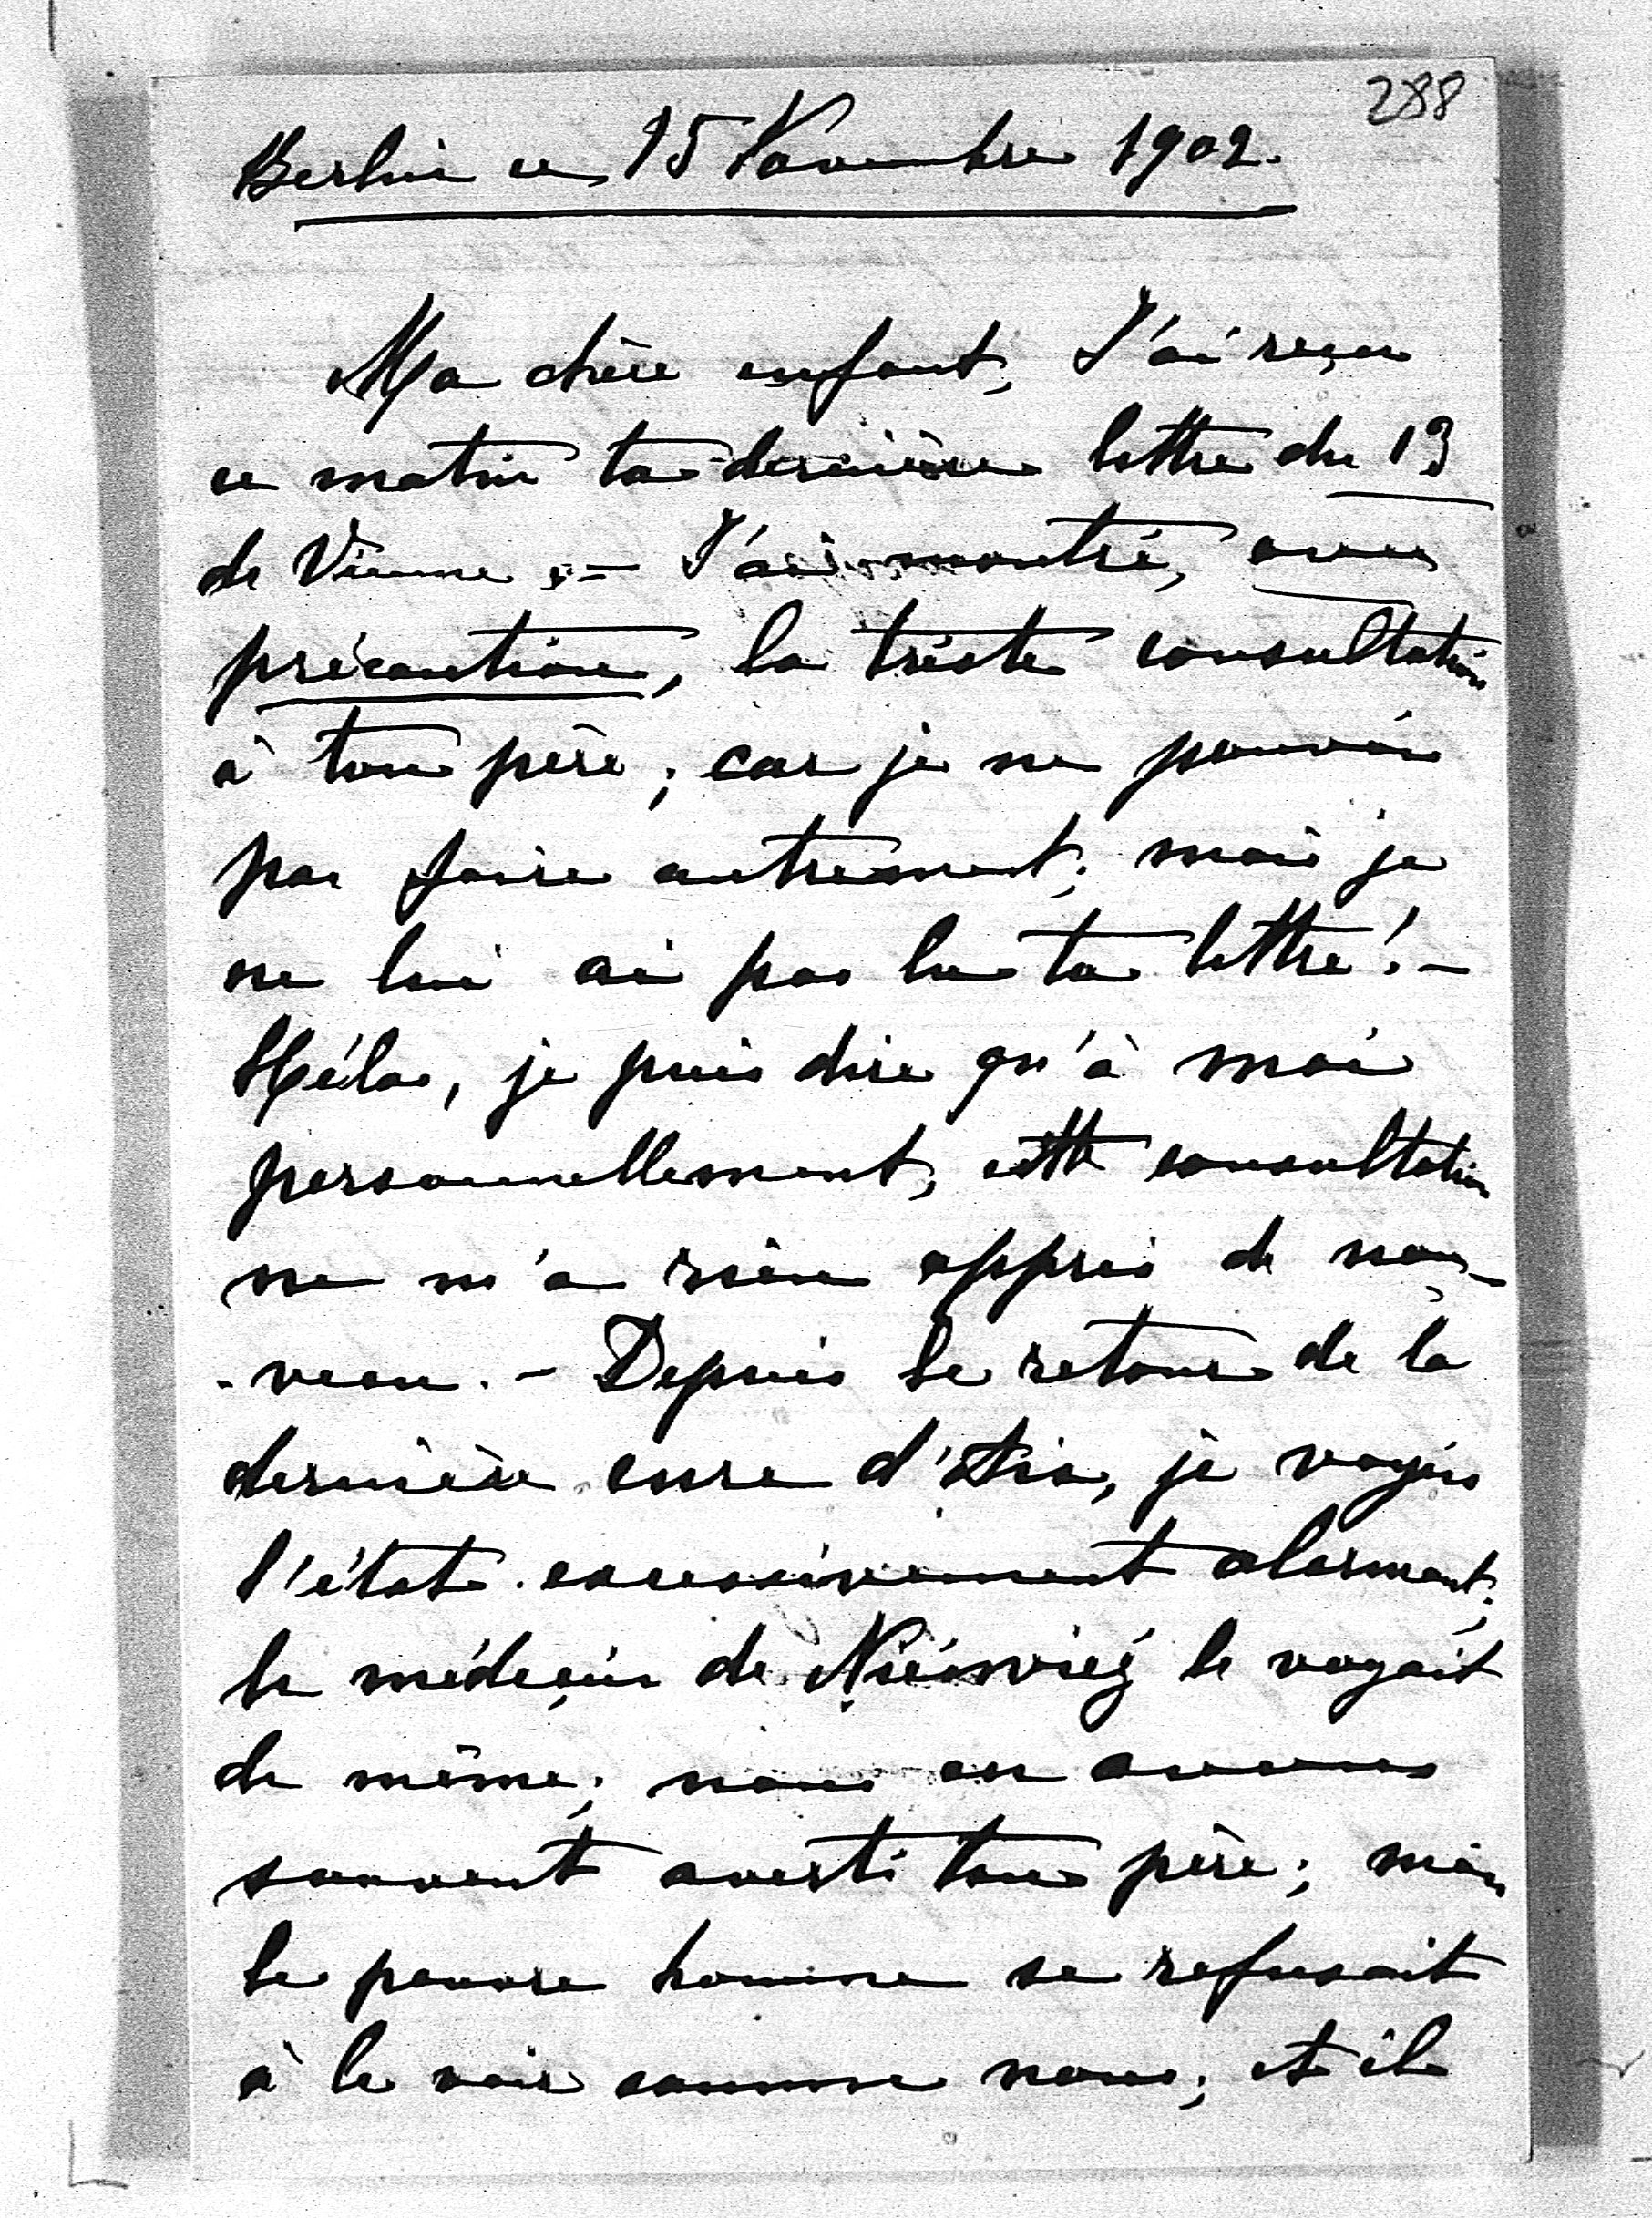 288
Berlin ce 15 Novembre 1902.
Ma chère enfant, J'ai reçu
ce matin ta dernière lettre du 13
de Vienne. – J'ai montré, avec
précaution, la triste consultation
à ton père; car je ne pouvais
pas faire autrement; mais je
ne lui ai pas lu ta lettre! –
Hélas, je puis dire qu'à moi
personnellement, cette consultation
ne m'a rien appris de nou-
-veau. – Depuis le retour de la
dernière cure d'Aix, je voyais
l'état excessivement alarmant;
le médecin de Nieśwież le voyait
de même; nous en avons
souvent averti ton père; mais
le pauvre homme se refusait
à le voir comme nous; et il